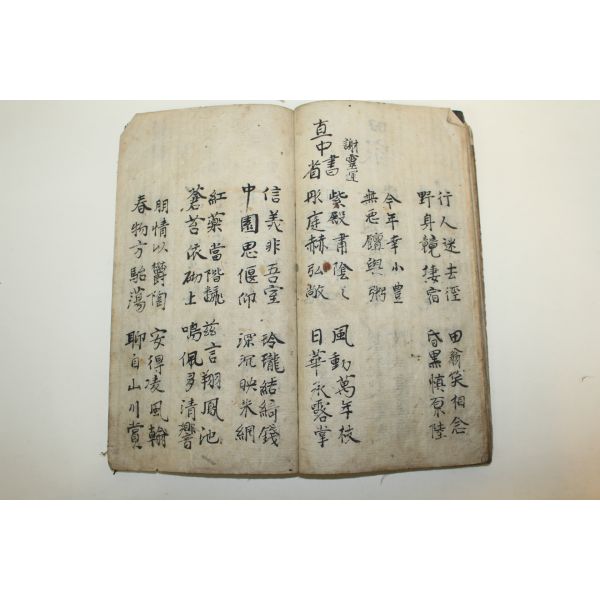 行人迷去徑
野身競棲宿
田翁笑相念
昏黑慎原陸
今年幸小豊
無惡饘與粥
直中書省
謝靈運
紫殿肅陰々
彤庭赫弘敞
風動萬年枝
日華承露掌
信義非吾室
中園思偃仰
玲瓏結綺錢
深沉映朱網
紅藥當階飜
蒼苔依砌上
茲言翔鳳池
鳴佩多清響
朋情以鬱陶
春物方駘蕩
安得凌風翰
聊自山川賞